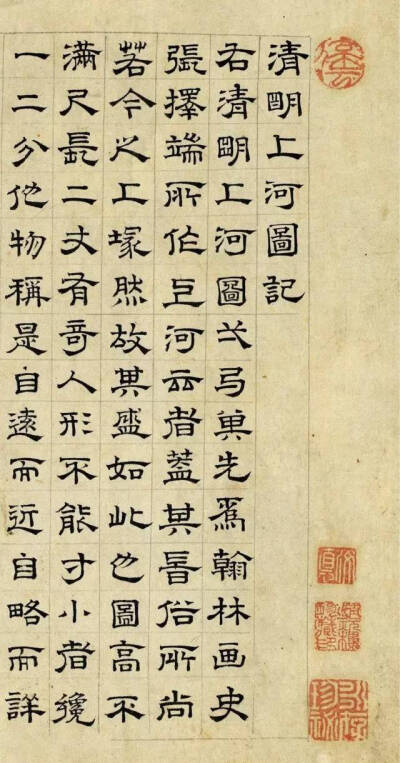 清朙上河圖記
右清朙上河圖弌弓先爲翰林画史
張擇端所作上河云者蓋其峕俗所尚
若今之上塚然故其盛如此也圖高不
滿尺長二丈有奇人形不能寸小者纔
一二分他物稱是自遠而近自略而詳